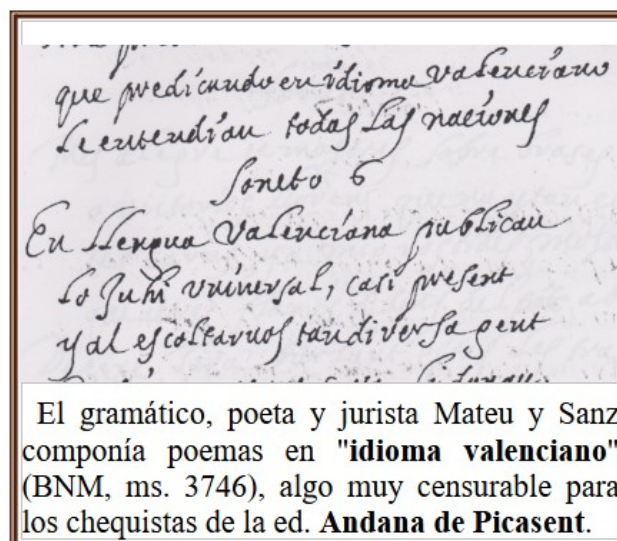 que predicando en idioma valenciano
le entendian todas las naciones
Soneto 6
En llengua valenciana publicau
lo Juhi universal, casi present
y al escoltarvos tan diversa gent
El gramático, poeta y jurista Mateu y Sanz
componía poemas en "idioma valenciano"
(BNM, ms. 3746), algo muy censurable para
los chequistas de la ed. Andana de Picasent.